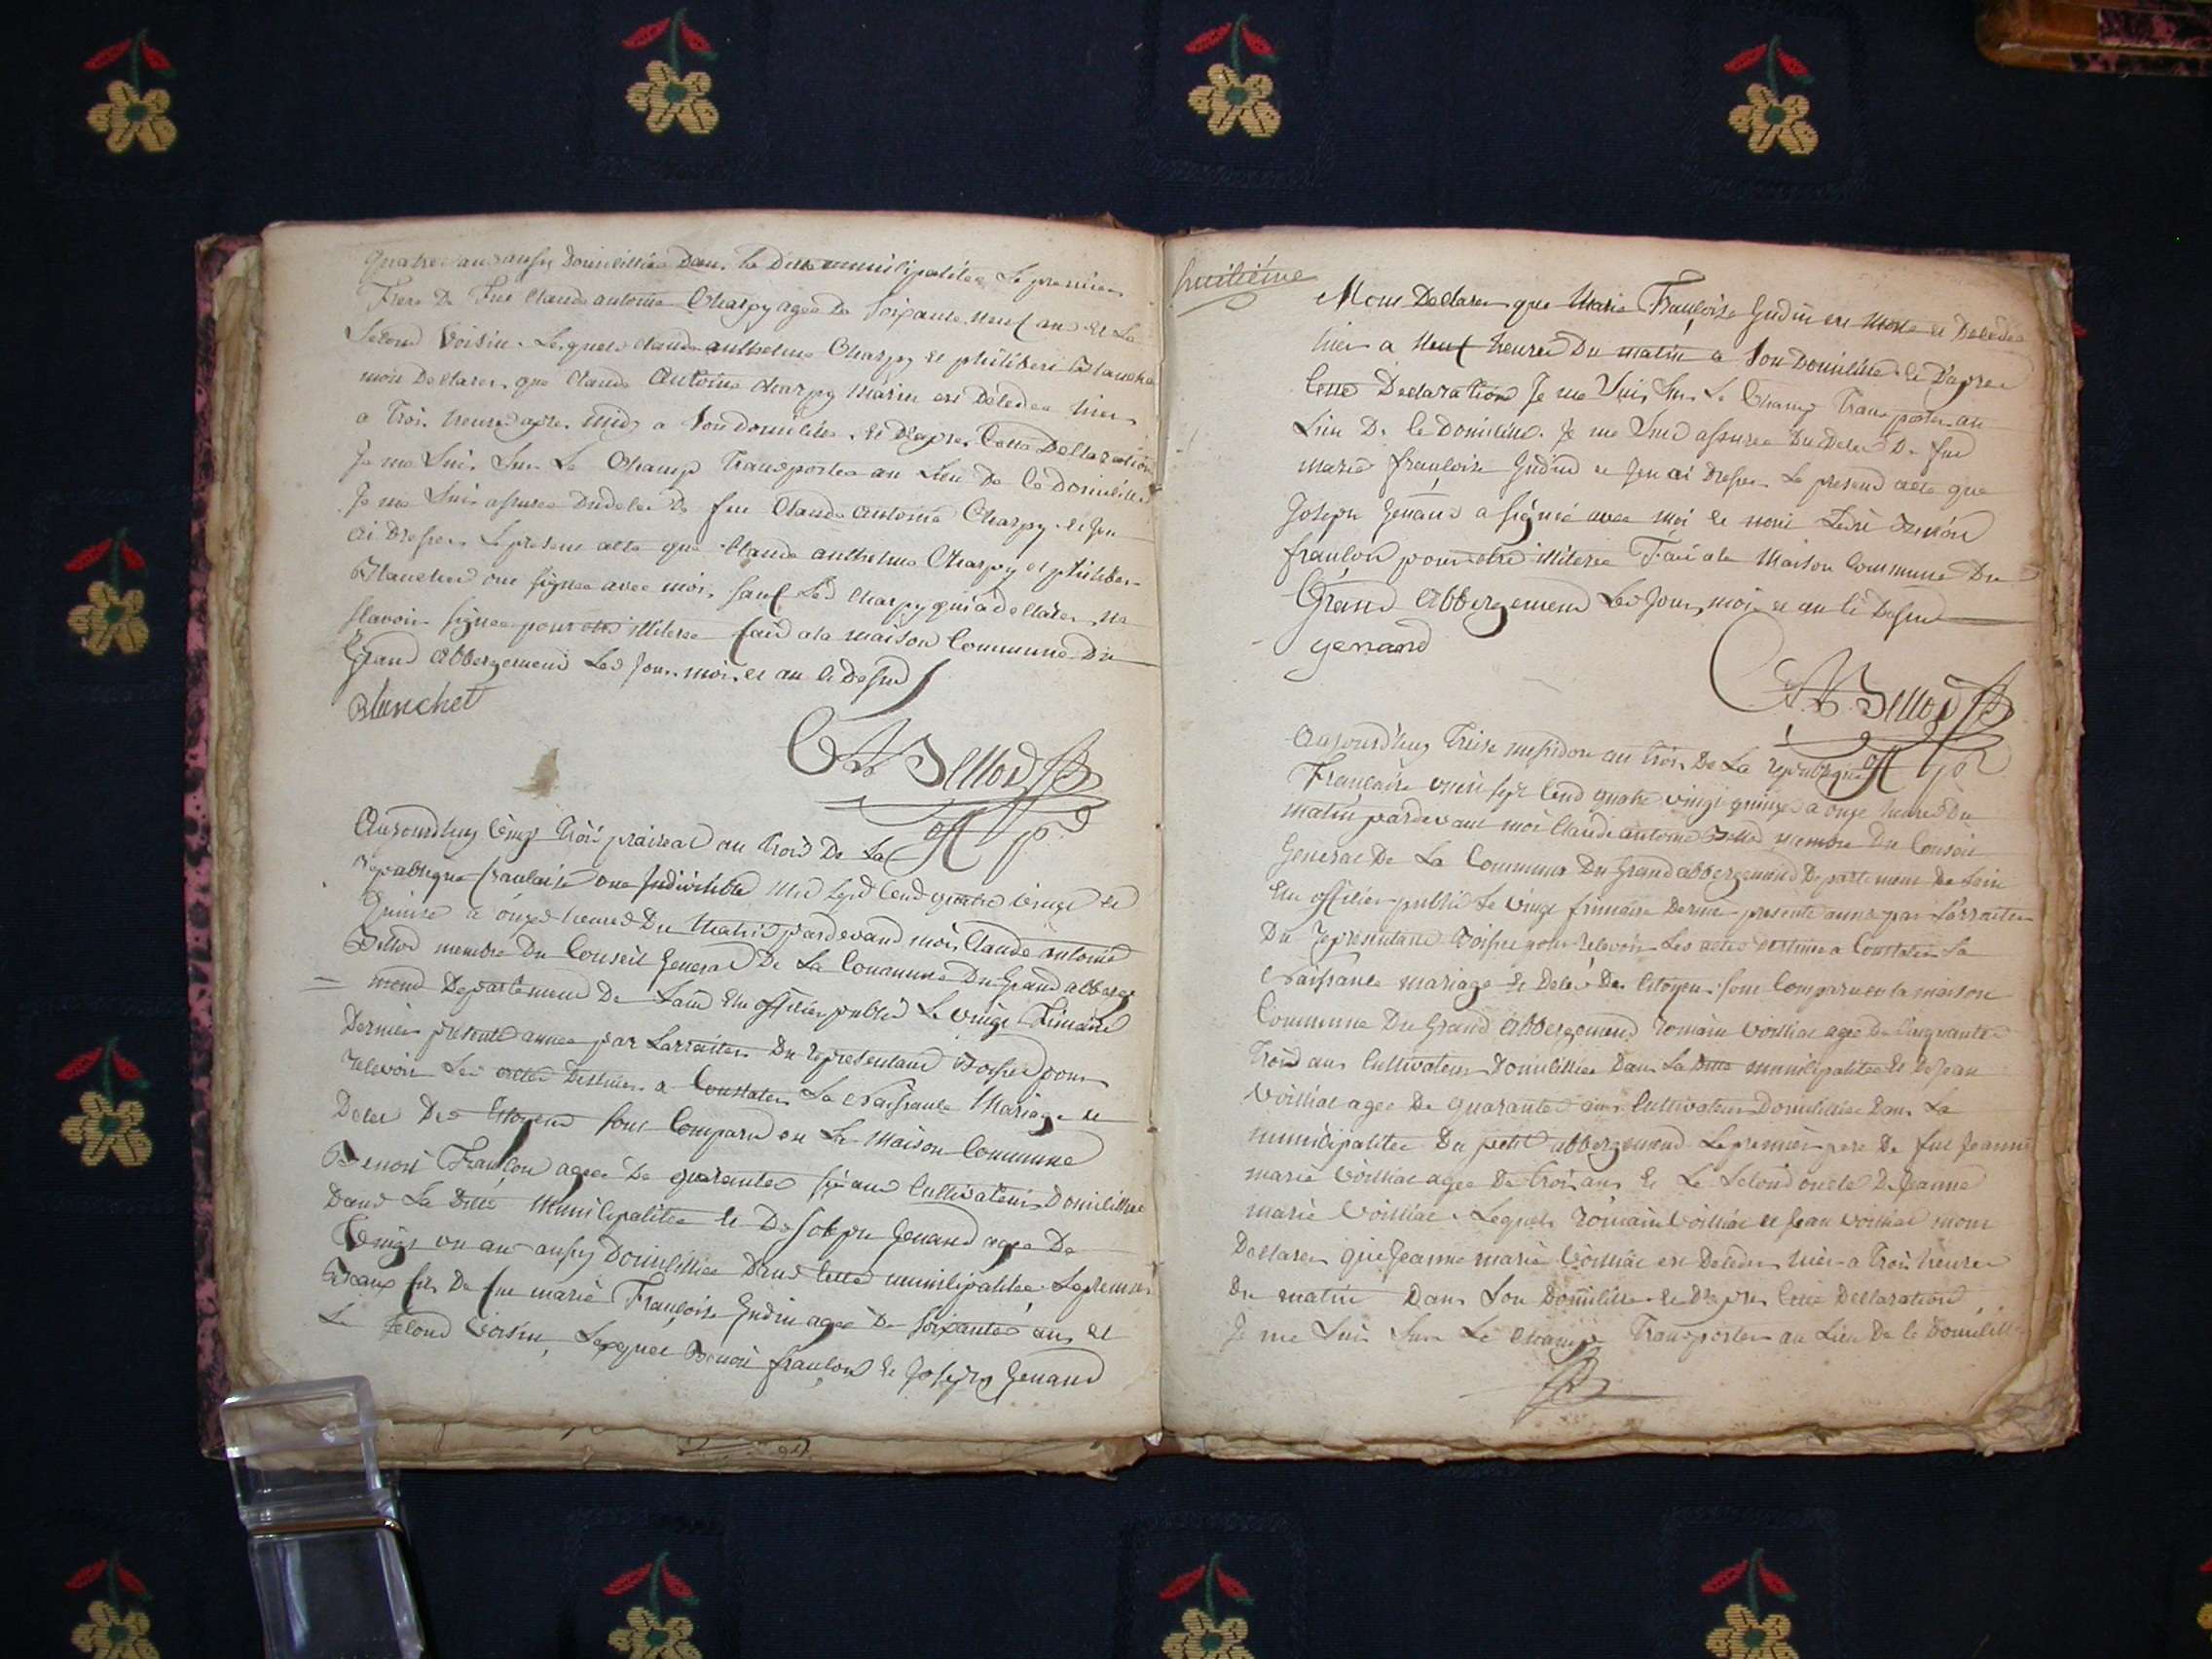 quatre ans aussy Domicilliée Dans la Ditte municipalitée Le premier
Frere De Fue Claude antoine Charpy agee De Soixante neuf ans Et Le
Second Voisin. Lesquels Claude anthelme Charpy Et philibert Blanchet
mon Declarer que Claude Antoine Charpy Marin est Décédee hier
a Trois heure apres midy a Son Domicille. Et D'apres Cette Declaration
Je me Suis Sur Le Champ Transportee au Lieu De Ce Domicille
Je me Suis assuree Du deces De fue Claude antoine Charpy. Et J'en
ai Dresser Le present acte que Claude anthelme Charpy et philibert
Blanchet ont signee avec moi, sauf Led Charpy qui a declarer ne
scavoir signee pour etre illiteree faid a la maison Commune Du
Grand Abbergement Les Jour, moi, et an Ci Dessus
Blanchet
Bellod
off p
Aujourdhuy vingt trois prairial an trois De La
republique francaise une Indivisible mil sept Cend quatre vingt et
quinse a onze heures Du Matin pardevand moi Claude antoine
Bellod membre Du Conseil General De La Commune Du Grand abberge
= mend Departemend De Lain Elu officier public Le vingt Frimaire
Dernier presente annee par Larraiter Du representand Boisset pour
recevoir Les actes Destinee a Constater La Naissance Mariage et
Deces Des Citoyens Sont Comparu en La Maison Commune
Benoit Françon agee De quarantes six ans Cultivateur Domicillee
Dans La Ditte Municipalitée Et De Joseph Genand agee De
vingt un ans aussy Domicilliée Dans Cette municipalitée. Le premier
fils De fue marie Françoise Gudin agee De soixantes ans et
Le Second Voisin, Lesquel Benoit françon Et Joseph Genand
huitième
Mont Declarer que Marie Françoise Gudin est Morte et Decedee
hier a neuf heures Du matin a Son Domicille. Et D'apres
Cette Declaration Je me Suis Sur Le Champ Transporter au
Lieu De Ce Domicille. Je me Suis assuree Du Deces De fue
marie françoise Gudin et J'en ai Dresser Le present acte que
Joseph Genand a signé avec moi et non Ledit Benoit
françon pour etre illiteree Fait a la Maison Commune Du
Grand Abbergemend Les Jour, moi et an Ci Dessus
genand
Bellod
off p
Aujourd'huy Treise messidor an trois De La republique
Francaise mil sept Cend quatre vingt quinze a onze heures Du
matin pardevant moi Claude antoine Bellod membre Du Conseil
General De La Commune Du Grand abbergemend Departement De Lain
Elu officier public Le vingt frimaire Dernier presente annee par Larraiter
Du representand Boisset pour recevoir Les actes destinee a Constater La
Naissance mariage Et Deces Des Citoyens. sont Comparu en la maison
Commune Du Grand Abbergemend romain voilliat agee De Cinquante
Trois ans Cultivateur Domicilliée Dans La Ditte municipalitée Et De Jean
Voilliat agee De quarantes ans Cultivateur Domicilliée Dans La
municipalitee Du petit abbergemend Le premier pere De fue Jeanne
marie voilliat agee De Trois ans Et Le Second oncle De Jeanne
marie Voilliat. Lequels romain Voilliat et Jean voilliat mont
Declarer que Jeanne marie Voilliat est Decedee hier a Trois heures
Du matin Dans Son Domicille. Et D'apres Cette Declaration
Je me Suis Sur Le Champ Transporter au Lieu De Ce Domicille